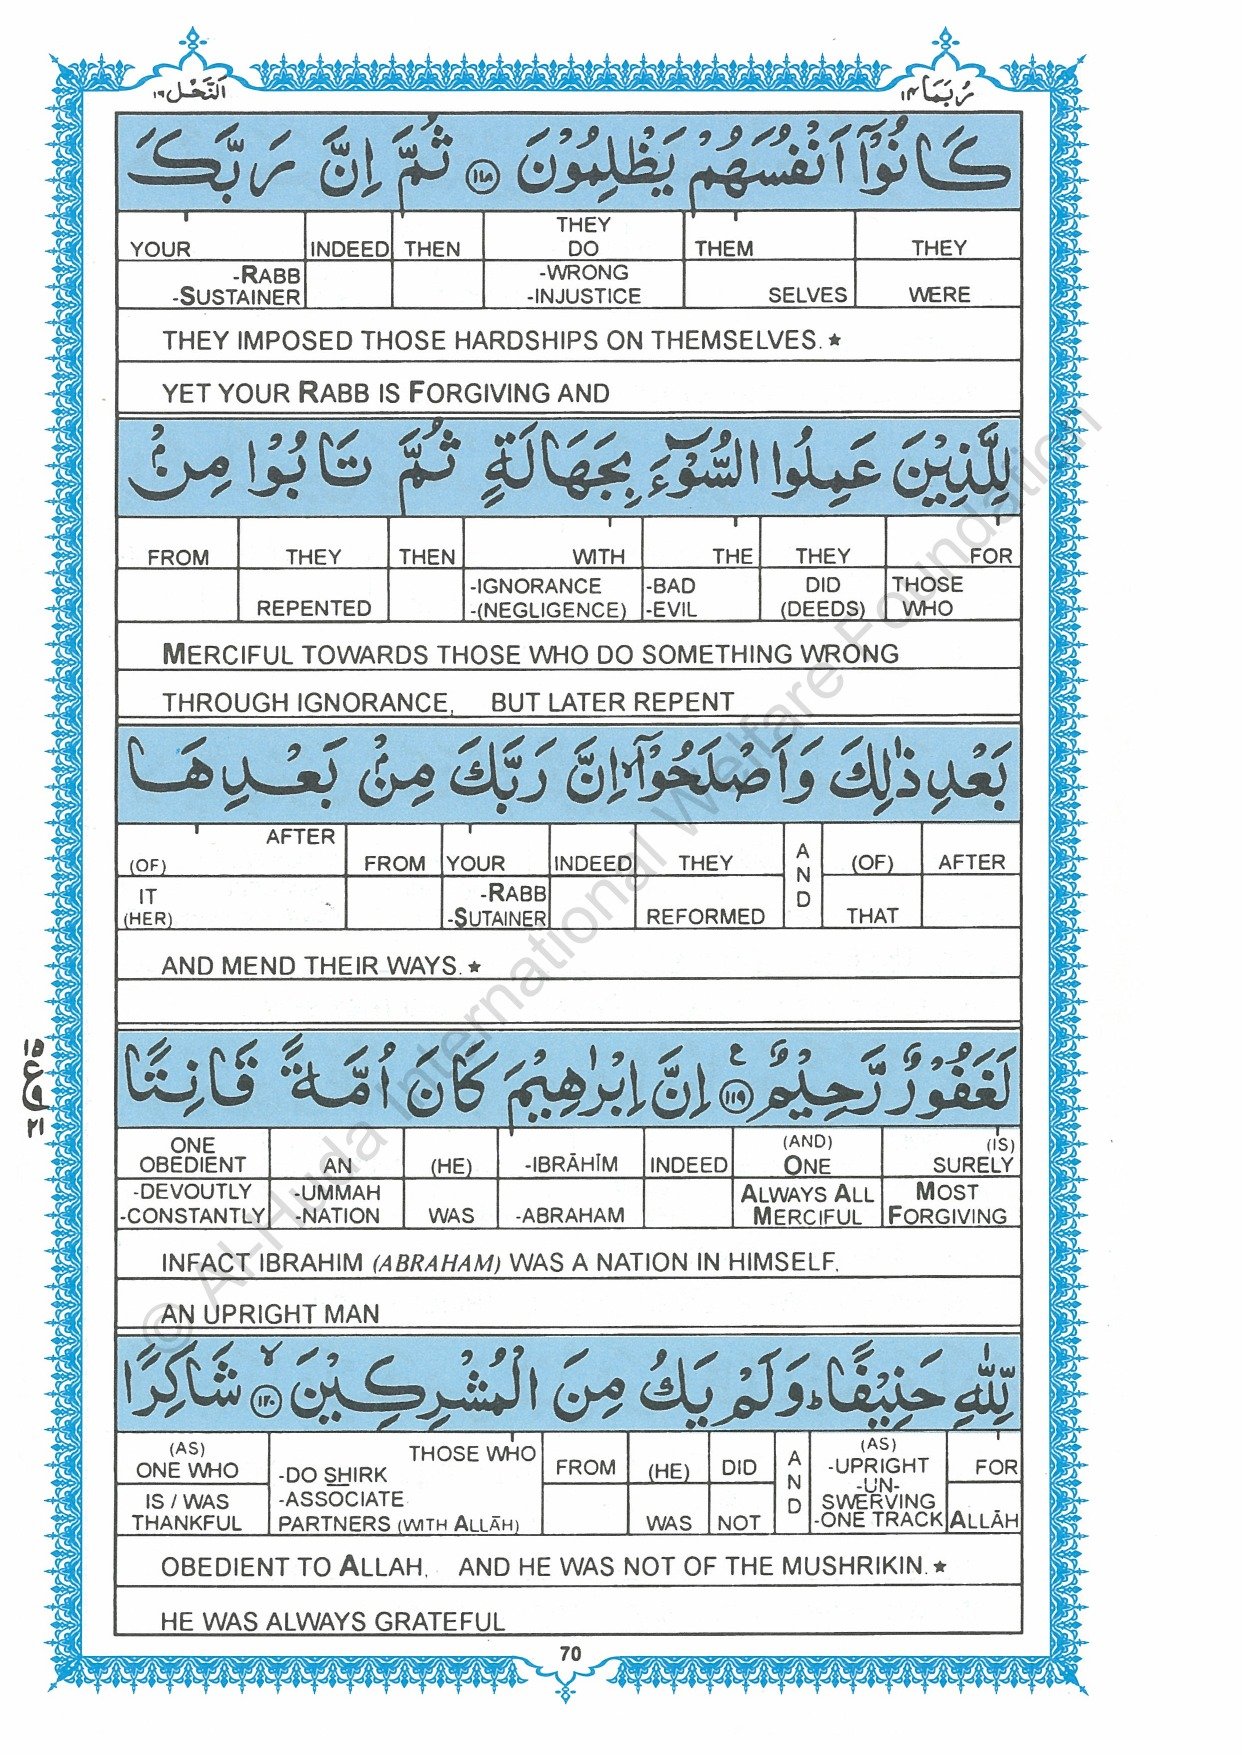 النَّحْل ١٦ رُبَمَا ١٤
كَانُوْٓا اَنْفُسَهُمْ يَظْلِمُوْنَ ١١٨ ثُمَّ اِنَّ رَبَّكَ
YOUR INDEED THEN THEY DO THEM THEY
-RABB -SUSTAINER -WRONG -INJUSTICE SELVES WERE
THEY IMPOSED THOSE HARDSHIPS ON THEMSELVES.★
YET YOUR RABB IS FORGIVING AND
لِلَّذِيْنَ عَمِلُوا السُّوْٓءَ بِجَهَالَةٍ ثُمَّ تَابُوْا مِنْۢ
FROM THEY THEN WITH THE THEY FOR
REPENTED -IGNORANCE -(NEGLIGENCE) -BAD -EVIL DID (DEEDS) THOSE WHO
MERCIFUL TOWARDS THOSE WHO DO SOMETHING WRONG
THROUGH IGNORANCE, BUT LATER REPENT
بَعْدِ ذٰلِكَ وَاَصْلَحُوْٓا ۙ اِنَّ رَبَّكَ مِنْۢ بَعْدِهَا
AFTER (OF) FROM YOUR INDEED THEY AND (OF) AFTER
IT (HER) -RABB -SUTAINER REFORMED THAT
AND MEND THEIR WAYS.★
لَغَفُوْرٌ رَّحِيْمٌ ١١٩ ع اِنَّ اِبْرٰهِيْمَ كَانَ اُمَّةً قَانِتًا
١٥
ع
٢١
ONE OBEDIENT AN (HE) -IBRĀHĪM INDEED (AND) ONE (IS) SURELY
-DEVOUTLY -CONSTANTLY -UMMAH -NATION WAS -ABRAHAM ALWAYS ALL MERCIFUL MOST FORGIVING
INFACT IBRAHIM (ABRAHAM) WAS A NATION IN HIMSELF,
AN UPRIGHT MAN
لِّلّٰهِ حَنِيْفًا ؕ وَلَمْ يَكُ مِنَ الْمُشْرِكِيْنَ ١٢٠ ۙ شَاكِرًا
(AS) ONE WHO THOSE WHO FROM (HE) DID AND (AS) -UPRIGHT -UN- FOR
IS / WAS THANKFUL -DO SHIRK -ASSOCIATE PARTNERS (WITH ALLĀH) WAS NOT SWERVING -ONE TRACK ALLĀH
OBEDIENT TO ALLAH, AND HE WAS NOT OF THE MUSHRIKIN.★
HE WAS ALWAYS GRATEFUL
70
© Al-Huda International Welfare Foundation